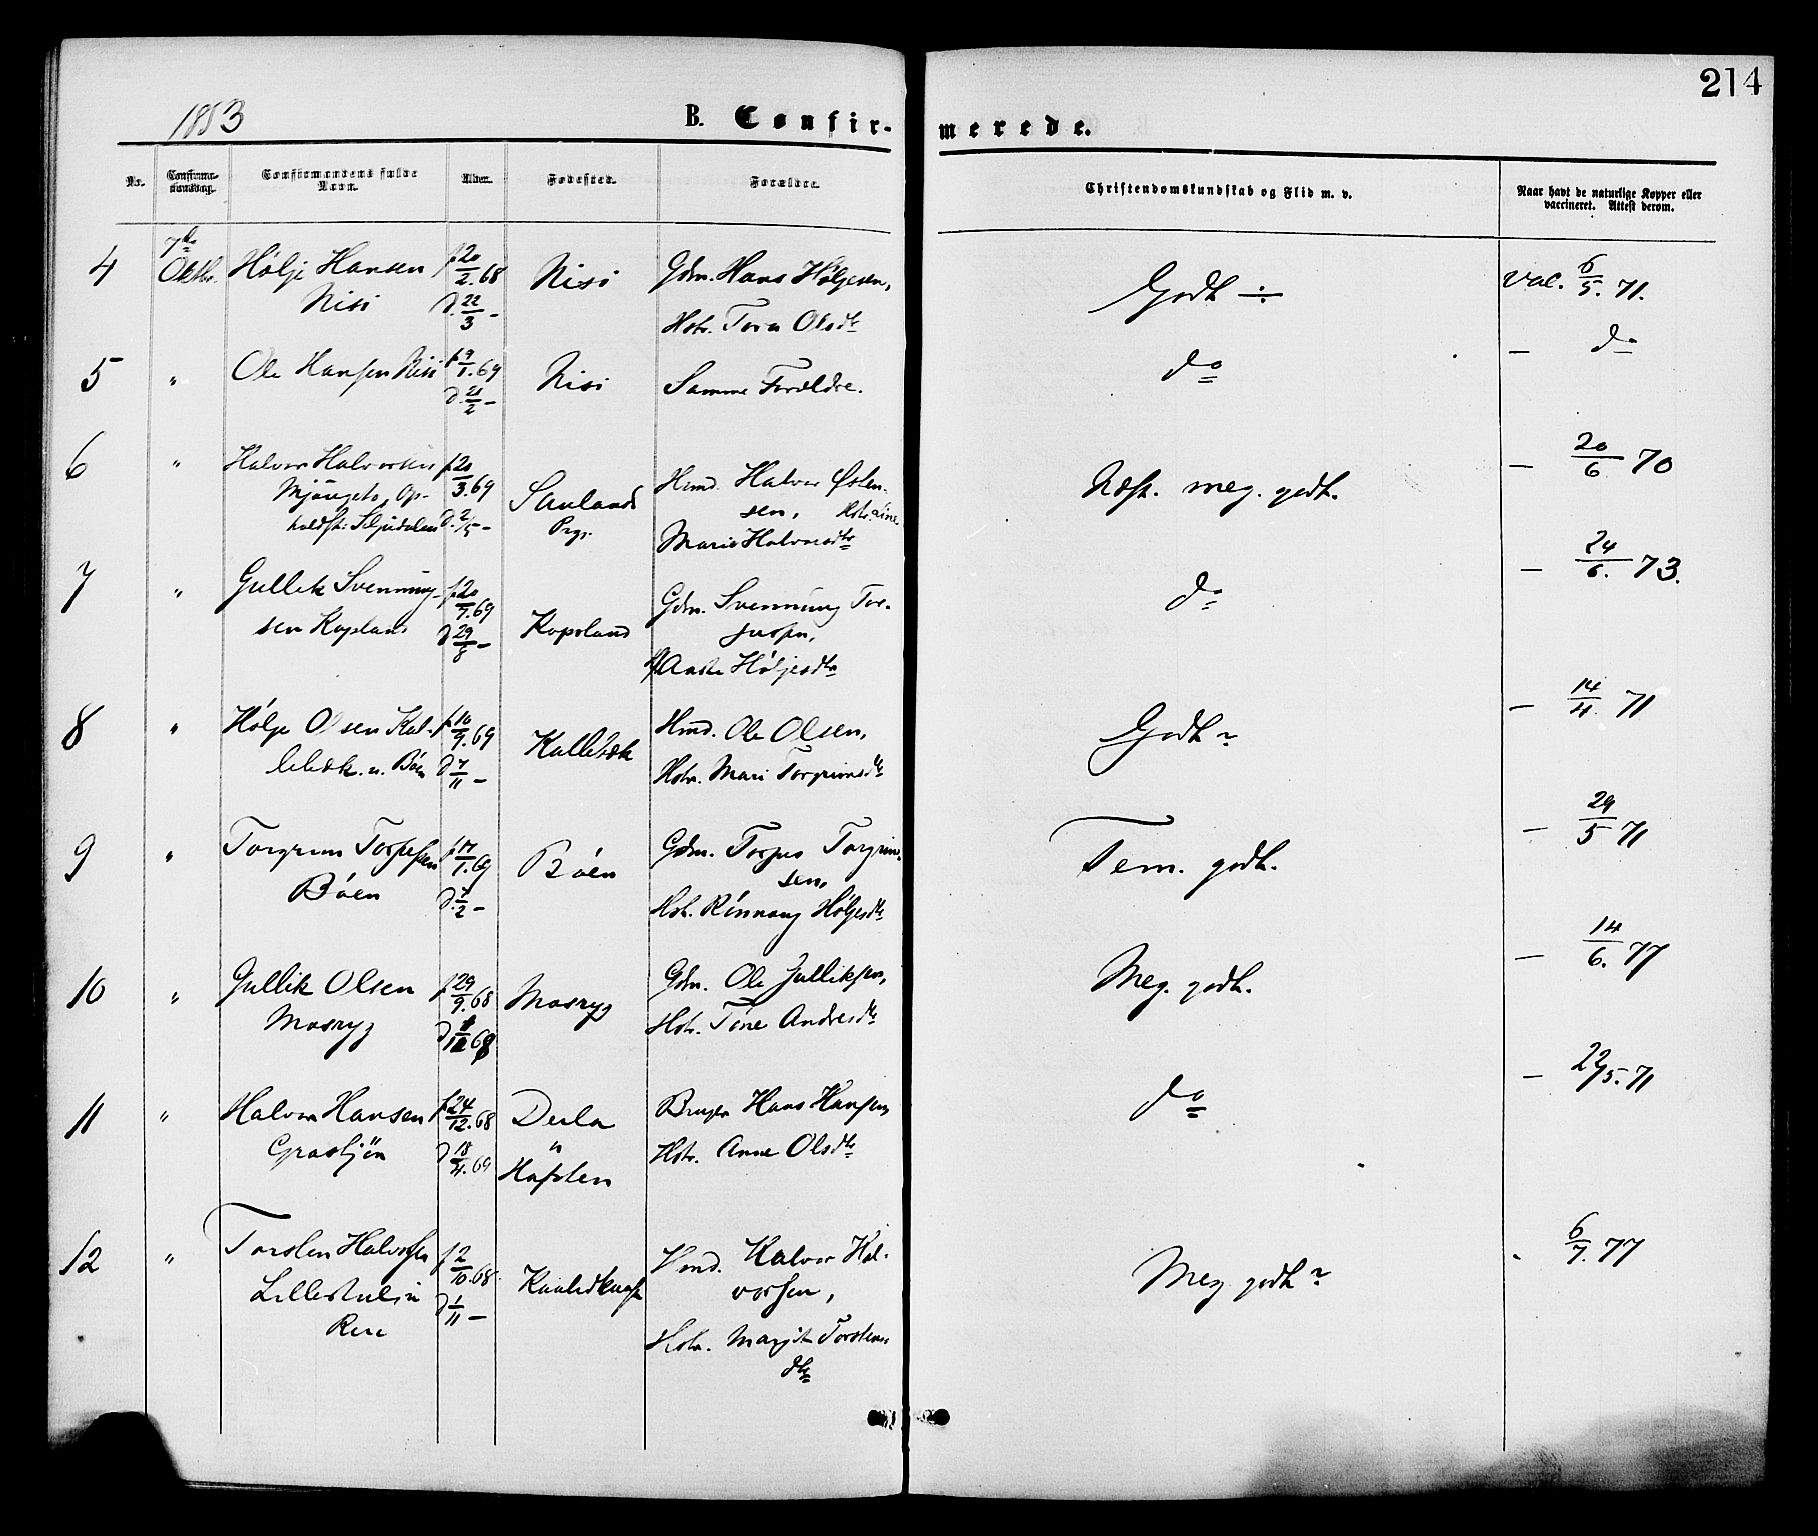 214
1883
B. Confirmerede.
No. Confirmationsdag. Confirmandens fulde Navn. Alder. Fødested. Forældre. Christendomskundskab og Flid m. v. Naar havt de naturlige Kopper eller vaccineret. Attest derom.
4 7de Oktbr. Hølje Hansen Nisi f. 20/2. 68 d. 22/3 – Nisi Gdm. Hans Høljesen, Hstr. Tora Olsdtr Godt ÷ Vac. 6/5. 71.
5 " Ole Hansen Nisi f. 9/1. 69 d. 21/2 – Nisi Samme Forældre. do – do
6 " Halvor Halvorsen Mjaugeto, Opholdst: Siljudalen f. 20/3. 69 d. 2/5 – Saulands Prgj. Hmd. Halvor Østensen, Hstr. Marie Halvorsdtr Næst. meg. godt. – 20/6 70
7 " Gullik Svenningsen Kopland f. 20/7. 69 d. 29/8 – Kopsland Gdm. Svenning Torjussen, Aaste Høljesdtr do – 24/6. 73.
8 " Hølje Olsen Kallebæk u. Bøen f. 10/9. 69 d. 7/11 – Kallebæk Hmd. Ole Olsen, Hstr. Mari Torgrimsdtr Godt ~ – 14/4. 71
9 " Torgrim Torjesen Bøen f. 17/1. 69 d. 7/2 – Bøen Gdm. Torjus Torgrimsen, Hstr. Rønnaug Høljesdtr Tem. godt. – 29/5 71
10 " Gullik Olsen Mosryg f. 29/9. 68 Mosryg Gdm. Ole Gulliksen, Hstr. Tone Andresdtr Meg. godt. – 14/6. 77
11 " Halvor Hansen Grastjøn f. 24/12. 68 d. 18/4. 69 Derla u Hafsten Bruger Hans Hansen Hstr. Anne Olsdtr do – 22/5. 71
12 " Torsten Halvorsen Lillestulen f. 2/10. 68. d. 1/11 – Hmd. Halvor Halvorsen, Hstr. Margit Torstensdtr Meg godt ~ - 6/7. 77